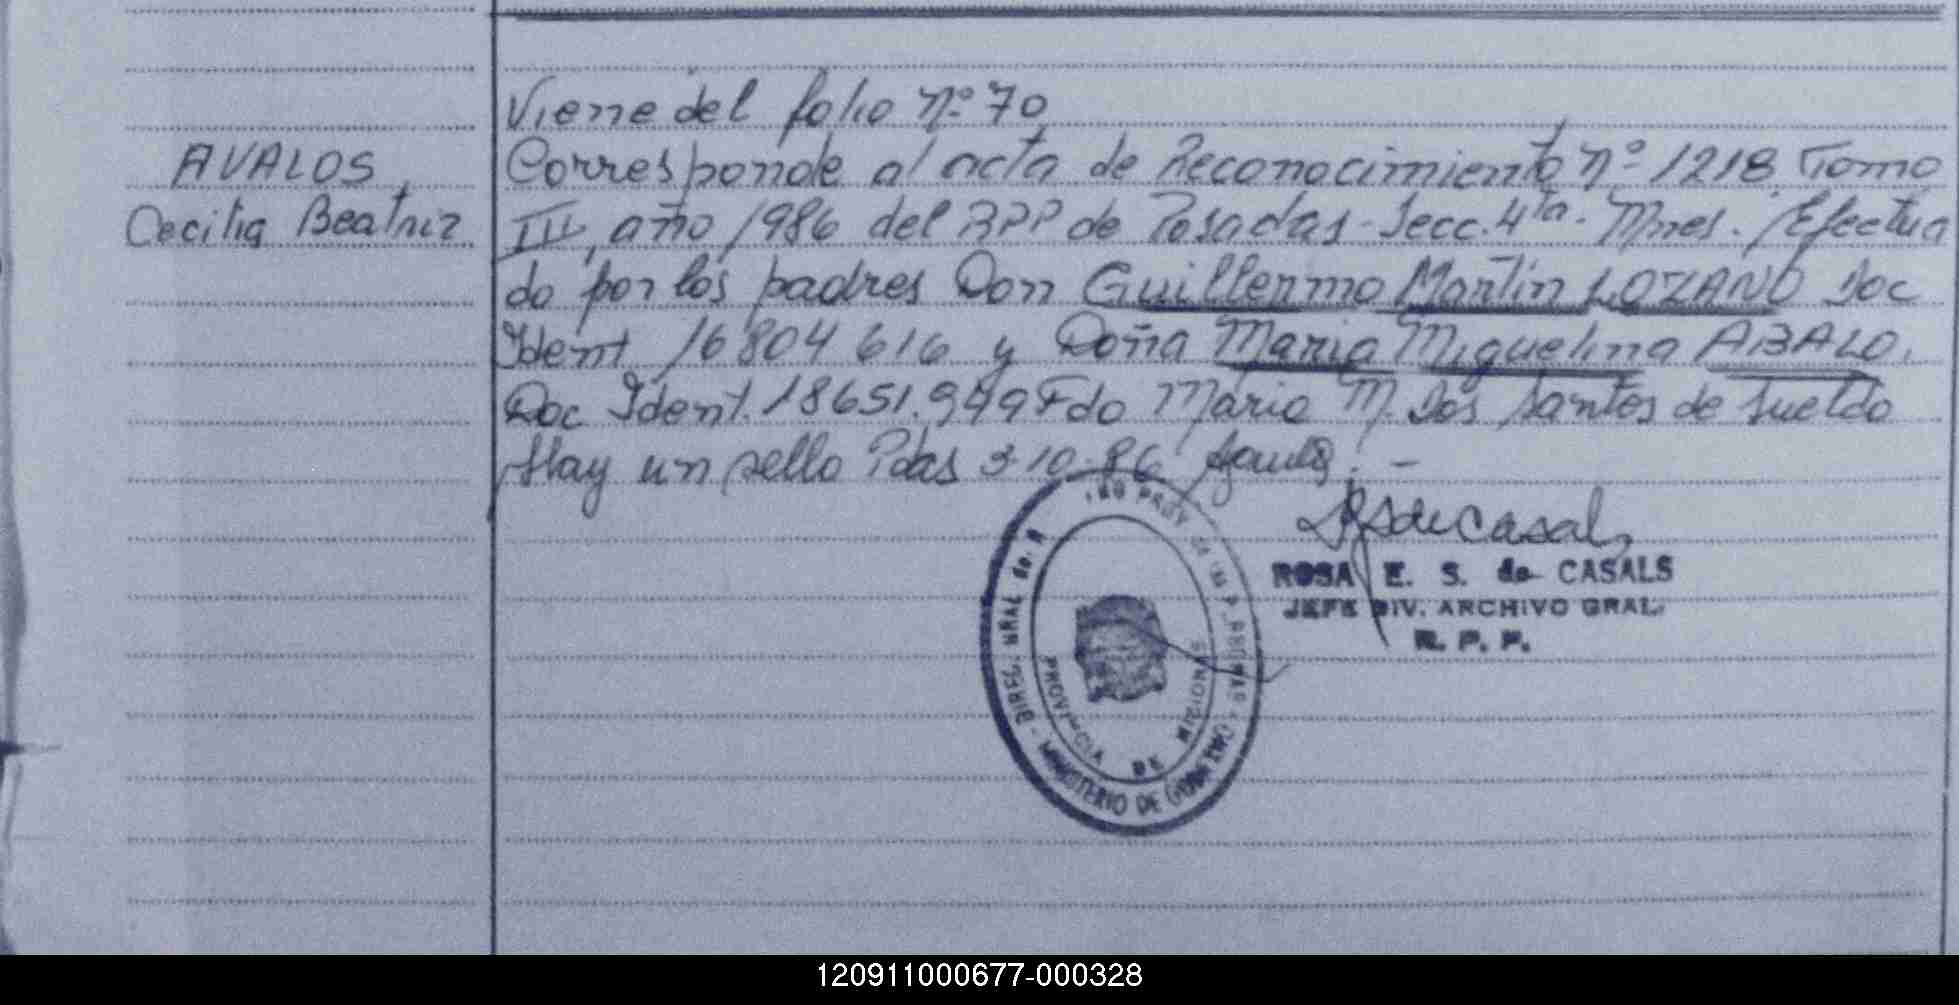 Viene del folio Nº 70
AVALOS
Cecilia Beatriz
Corresponde al acta de Reconocimiento Nº 1218 Tomo
III, año 1986 del RPP de Posadas - Secc. 4ta - Mnes. Efectua
do por los padres Don Guillermo Martín LOZANO Doc
Ident 16804616 y Doña Maria Miguelina ABALO.
Doc Ident. 18651.949 Fdo Mario M. Dos Santos de Sueldo
Hay un sello Pdas 3-10-86
ROSA E. S. de CASALS
JEFE DIV. ARCHIVO GRAL.
R. P. P.
DIREC. GRAL de
MINISTERIO DE GOBIERNO
PROVINCIA DE MISIONES
120911000677-000328